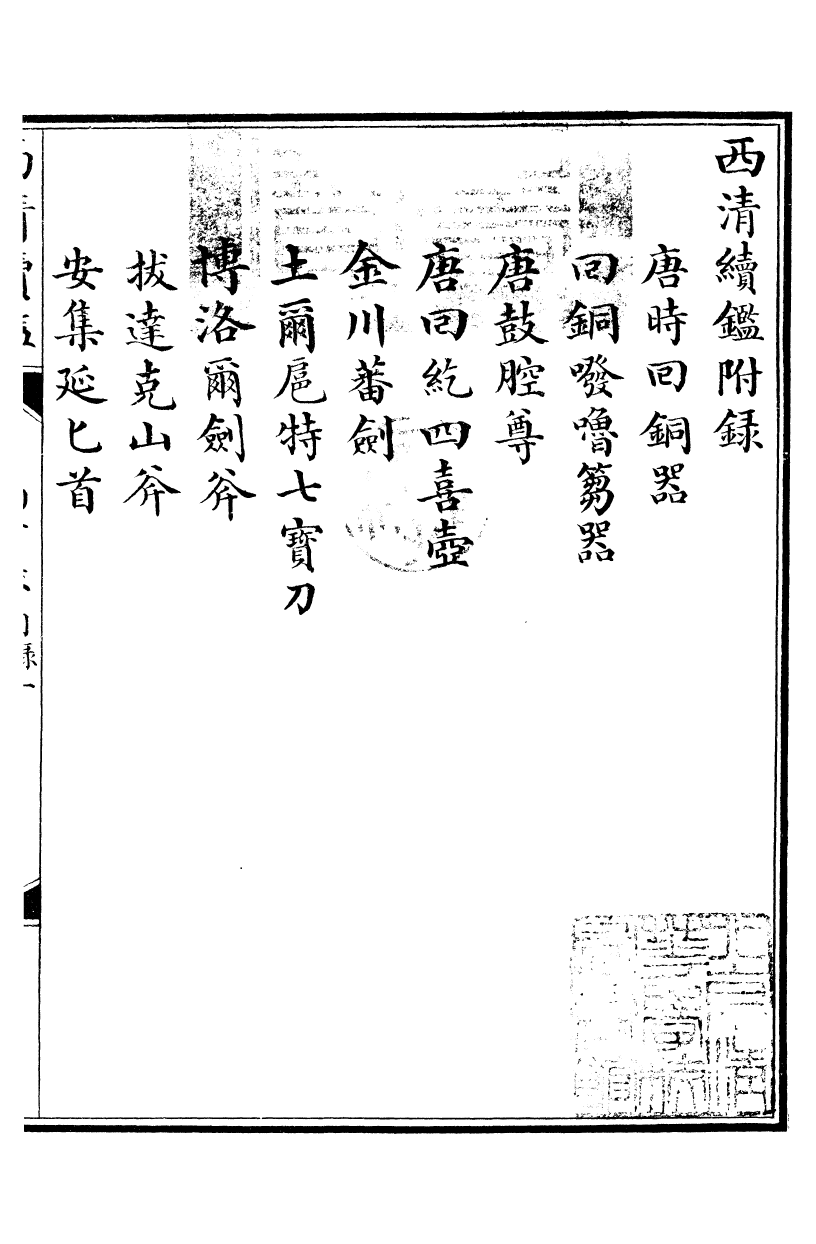 西清續鑑附録
唐時回銅器
回銅嘐嚕篘器
唐鼓腔尊
唐回紇四喜壺
金川蕃劍
土爾扈特七寶刀
博洛爾劍斧
拔達克山斧
安集延匕首